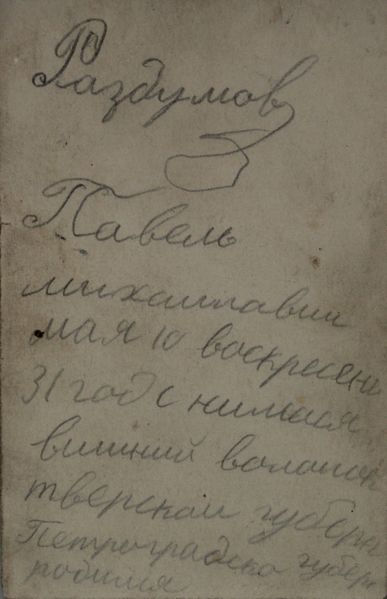 Раздумов
Павель
михаилавич
мая 10 воскресени
31 год снимался
вишний волочок
тверской губерн
Петроградско губерн
родился